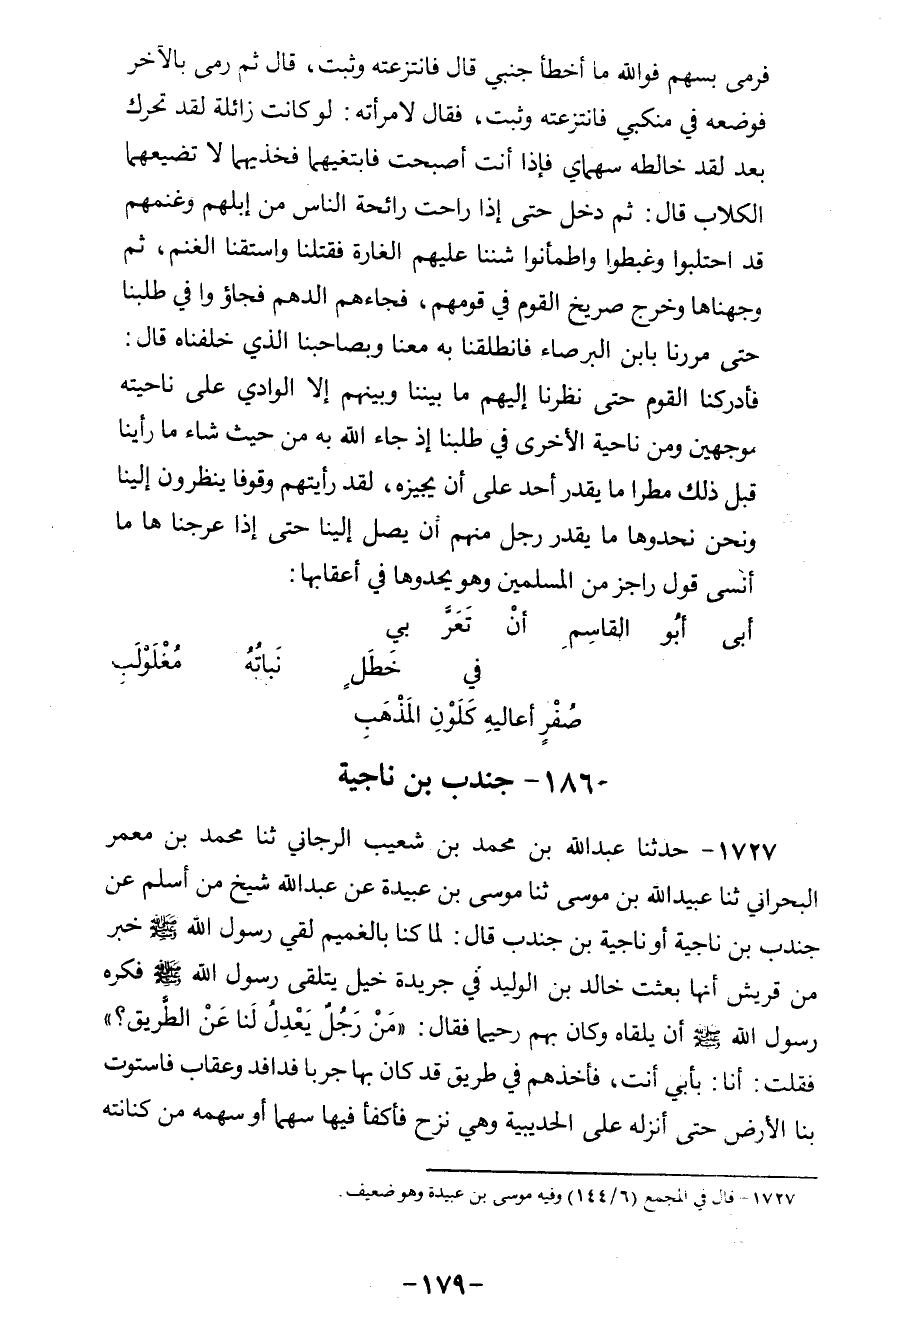 فرمى بسهم فوالله ما أخطأ جنبي قال فانتزعته وثبت، قال ثم رمى بالآخر
فوضعه في منكبي فانتزعته وثبت، فقال لامرأته: لو كانت زائلة لقد تحرك
بعد لقد خالطه سهماي فإذا أنت أصبحت فابتغيهما فخذيهما لا تضيعهما
الكلاب قال: ثم دخل حتى إذا راحت رائحة الناس من إبلهم وغنمهم
قد احتلبوا وغبطوا واطمأنوا شننا عليهم الغارة فقتلنا واستقنا الغنم، ثم
وجهناها وخرج صريخ القوم في قومهم، فجاءهم الدهم فجاؤ وا في طلبنا
حتى مررنا بابن البرصاء فانطلقنا به معنا وبصاحبنا الذي خلفناه قال:
فأدركنا القوم حتى نظرنا إليهم ما بيننا وبينهم إلا الوادي على ناحيته
موجهين ومن ناحية الأخرى في طلبنا إذ جاء الله به من حيث شاء ما رأينا
قبل ذلك مطرا ما يقدر أحد على أن يجيزه، لقد رأيتهم وقوفا ينظرون إلينا
ونحن نحدوها ما يقدر رجل منهم أن يصل إلينا حتى إذا عرجنا ها ما
أنسى قول راجز من المسلمين وهو يحدوها في أعقابها:
أبى أبُو القاسِمِ أنْ تَعَزَّ بي
في خَطَلٍ نَباتُهُ مُغْلَوْلَبِ
صُفْرٍ أعاليهِ كَلَوْنِ المَذْهَبِ
١٨٦٠- جندب بن ناجية
١٧٢٧- حدثنا عبدالله بن محمد بن شعيب الرجاني ثنا محمد بن معمر
البحراني ثنا عبيدالله بن موسى ثنا موسى بن عبيدة عن عبدالله شيخ من أسلم عن
جندب بن ناجية أو ناجية بن جندب قال: لما كنا بالغميم لقي رسول الله ﷺ خبر
من قريش أنها بعثت خالد بن الوليد في جريدة خيل يتلقى رسول الله ﷺ فكره
رسول الله ﷺ أن يلقاه وكان بهم رحيما فقال: «مَنْ رَجُلٌ يَعْدِلُ لَنا عَنْ الطَّريق؟»
فقلت: أنا: بأبي أنت، فأخذهم في طريق قد كان بها جربا فدافد وعقاب فاستوت
بنا الأرض حتى أنزله على الحديبية وهي نزح فأكفأ فيها سهما أو سهمه من كنانته
١٧٢٧- قال في المجمع (١٤٤/٦) وفيه موسى بن عبيدة وهو ضعيف.
-١٧٩-